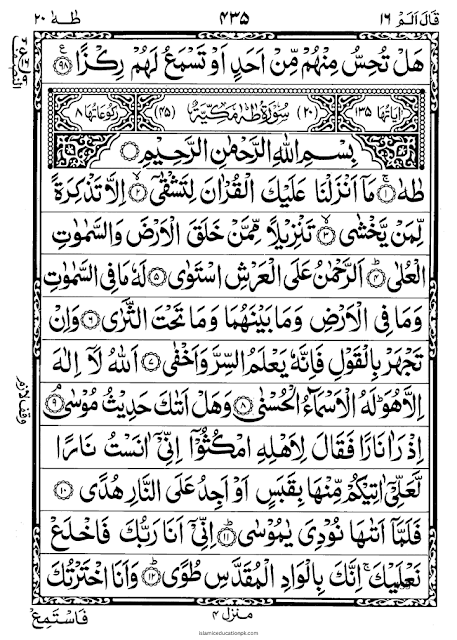 قَالَ اَلَمْ ١٦ ٤٣٥ طٰهٰ ٢٠
هَلْ تُحِسُّ مِنْهُمْ مِّنْ اَحَدٍ اَوْ تَسْمَعُ لَهُمْ رِكْزًا ﴿٩٨﴾
اٰيَاتُهَا ١٣٥ (٢٠) سُوْرَةُ طٰهٰ مَكِّيَّةٌ (٤٥) رُكُوْعَاتُهَا ٨
بِسْمِ اللّٰهِ الرَّحْمٰنِ الرَّحِيْمِ
طٰهٰ ﴿١﴾ مَاۤ اَنْزَلْنَا عَلَيْكَ الْقُرْاٰنَ لِتَشْقٰۤى ﴿٢﴾ اِلَّا تَذْكِرَةً
لِّمَنْ يَّخْشٰى ﴿٣﴾ تَنْزِيْلًا مِّمَّنْ خَلَقَ الْاَرْضَ وَالسَّمٰوٰتِ
الْعُلٰى ﴿٤﴾ اَلرَّحْمٰنُ عَلَى الْعَرْشِ اسْتَوٰى ﴿٥﴾ لَهٗ مَا فِى السَّمٰوٰتِ
وَمَا فِى الْاَرْضِ وَمَا بَيْنَهُمَا وَمَا تَحْتَ الثَّرٰى ﴿٦﴾ وَاِنْ
تَجْهَرْ بِالْقَوْلِ فَاِنَّهٗ يَعْلَمُ السِّرَّ وَاَخْفٰى ﴿٧﴾ اَللّٰهُ لَاۤ اِلٰهَ
اِلَّا هُوَ ؕ لَهُ الْاَسْمَآءُ الْحُسْنٰى ﴿٨﴾ وَهَلْ اَتٰىكَ حَدِيْثُ مُوْسٰى ﴿٩﴾
اِذْ رَاٰ نَارًا فَقَالَ لِاَهْلِهِ امْكُثُوْۤا اِنِّىْۤ اٰنَسْتُ نَارًا
لَّعَلِّىْۤ اٰتِيْكُمْ مِّنْهَا بِقَبَسٍ اَوْ اَجِدُ عَلَى النَّارِ هُدًى ﴿١٠﴾
فَلَمَّاۤ اَتٰىهَا نُوْدِىَ يٰمُوْسٰى ﴿١١﴾ اِنِّىْۤ اَنَا رَبُّكَ فَاخْلَعْ
نَعْلَيْكَ ۚ اِنَّكَ بِالْوَادِ الْمُقَدَّسِ طُوًى ﴿١٢﴾ وَاَنَا اخْتَرْتُكَ
مَنْزِل ٤ فَاسْتَمِعْ
islamiceducationpk.com